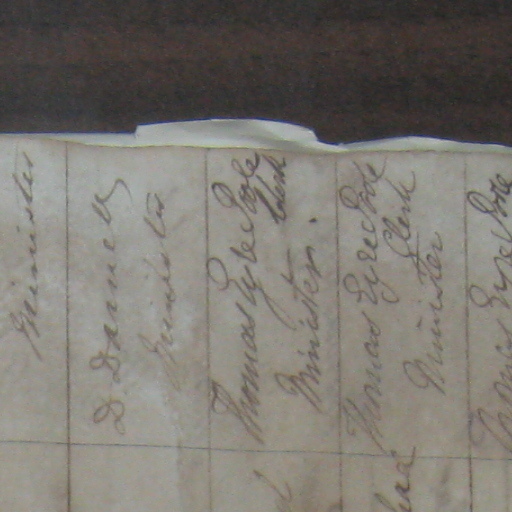 Minister
D. Darnell
Minister
Thomas Eyre Poole
Clerk
Minister.
Thomas Eyre Poole
Clerk
Minister
Thomas Eyre Poole